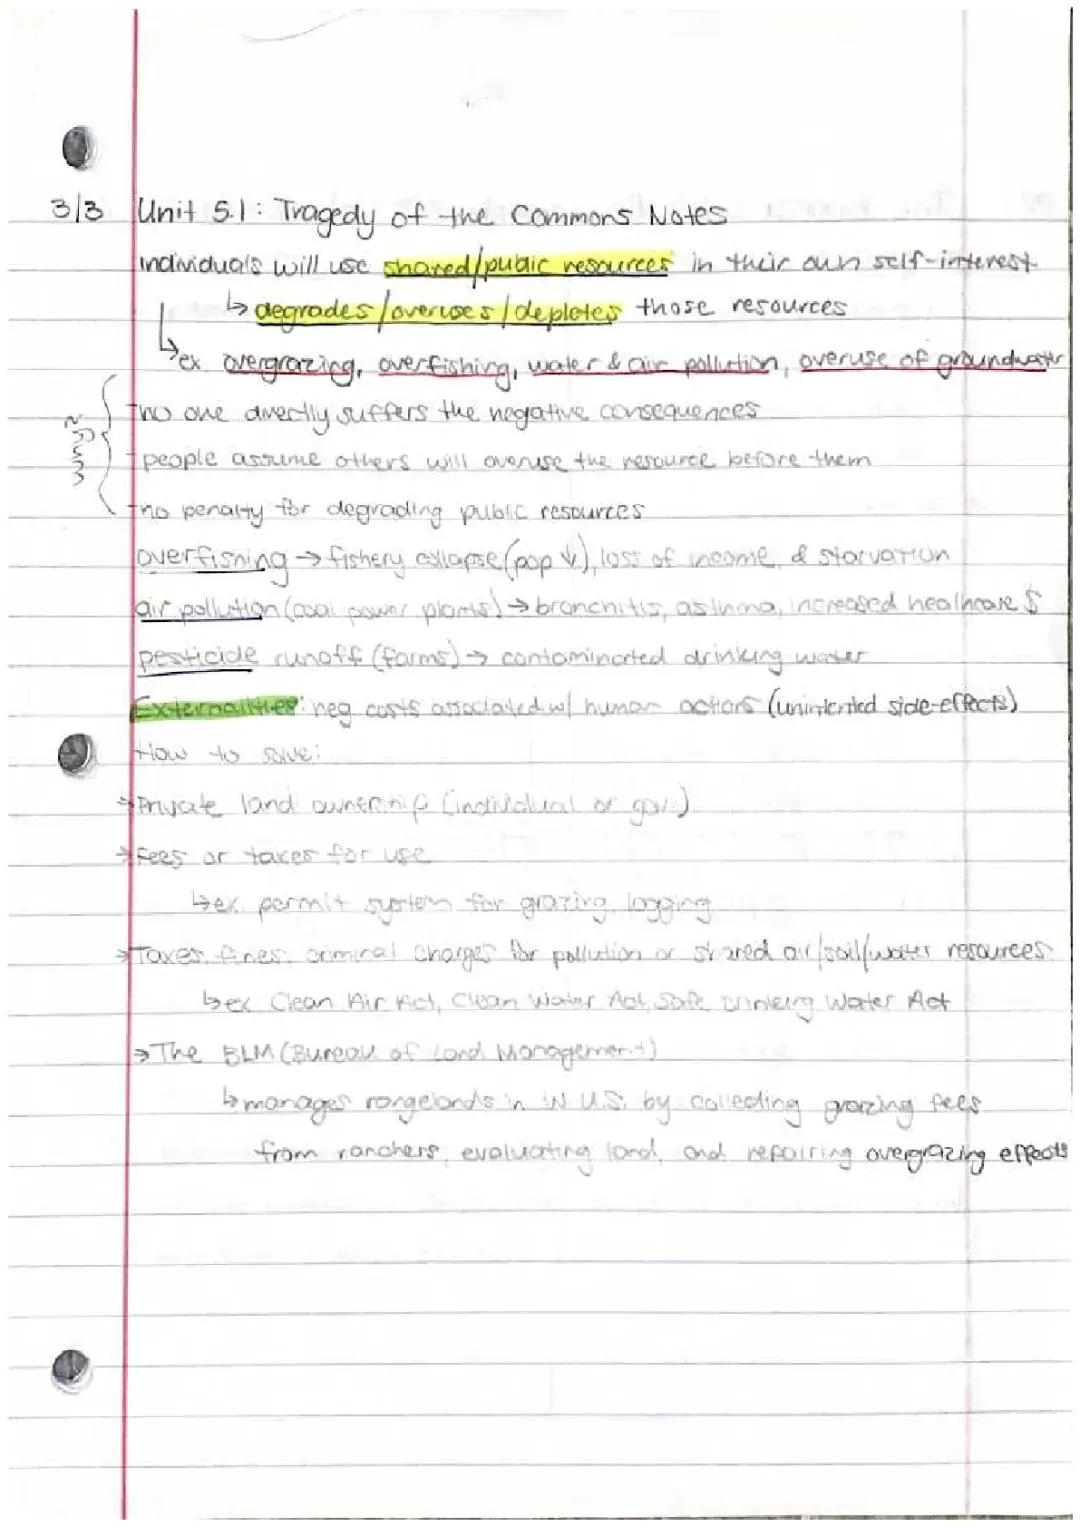 3/3 Unit 5.1: Tragedy of the Commons Notes
individuals will use shared/public resources in their own self-interest
↳ degrades/overuses/depletes those resources
↳ ex overgrazing, overfishing, water & air pollution, overuse of groundwater
no one directly suffers the negative consequences
people assume others will overuse the resource before them
no penalty for degrading public resources
overfishing → fishery collapse (pop ↓), loss of income, & starvation
air pollution (coal power plants) → bronchitis, asthma, increased healthcare $
pesticide runoff (farms) → contaminated drinking water
Externalities: neg costs associated w/ human actions (unintented side-effects)
How to solve:
→ Private land ownership (individual or gov.)
→ Fees or taxes for use
↳ ex. permit system for grazing, logging
→ Taxes, fines, criminal charges for pollution or shared air/soil/water resources
↳ ex Clean Air Act, Clean Water Act, Safe Drinking Water Act
→ The BLM (Bureau of Land Management)
↳ manages rangelands in W U.S. by collecting grazing fees
from ranchers, evaluating land, and repairing overgrazing effects